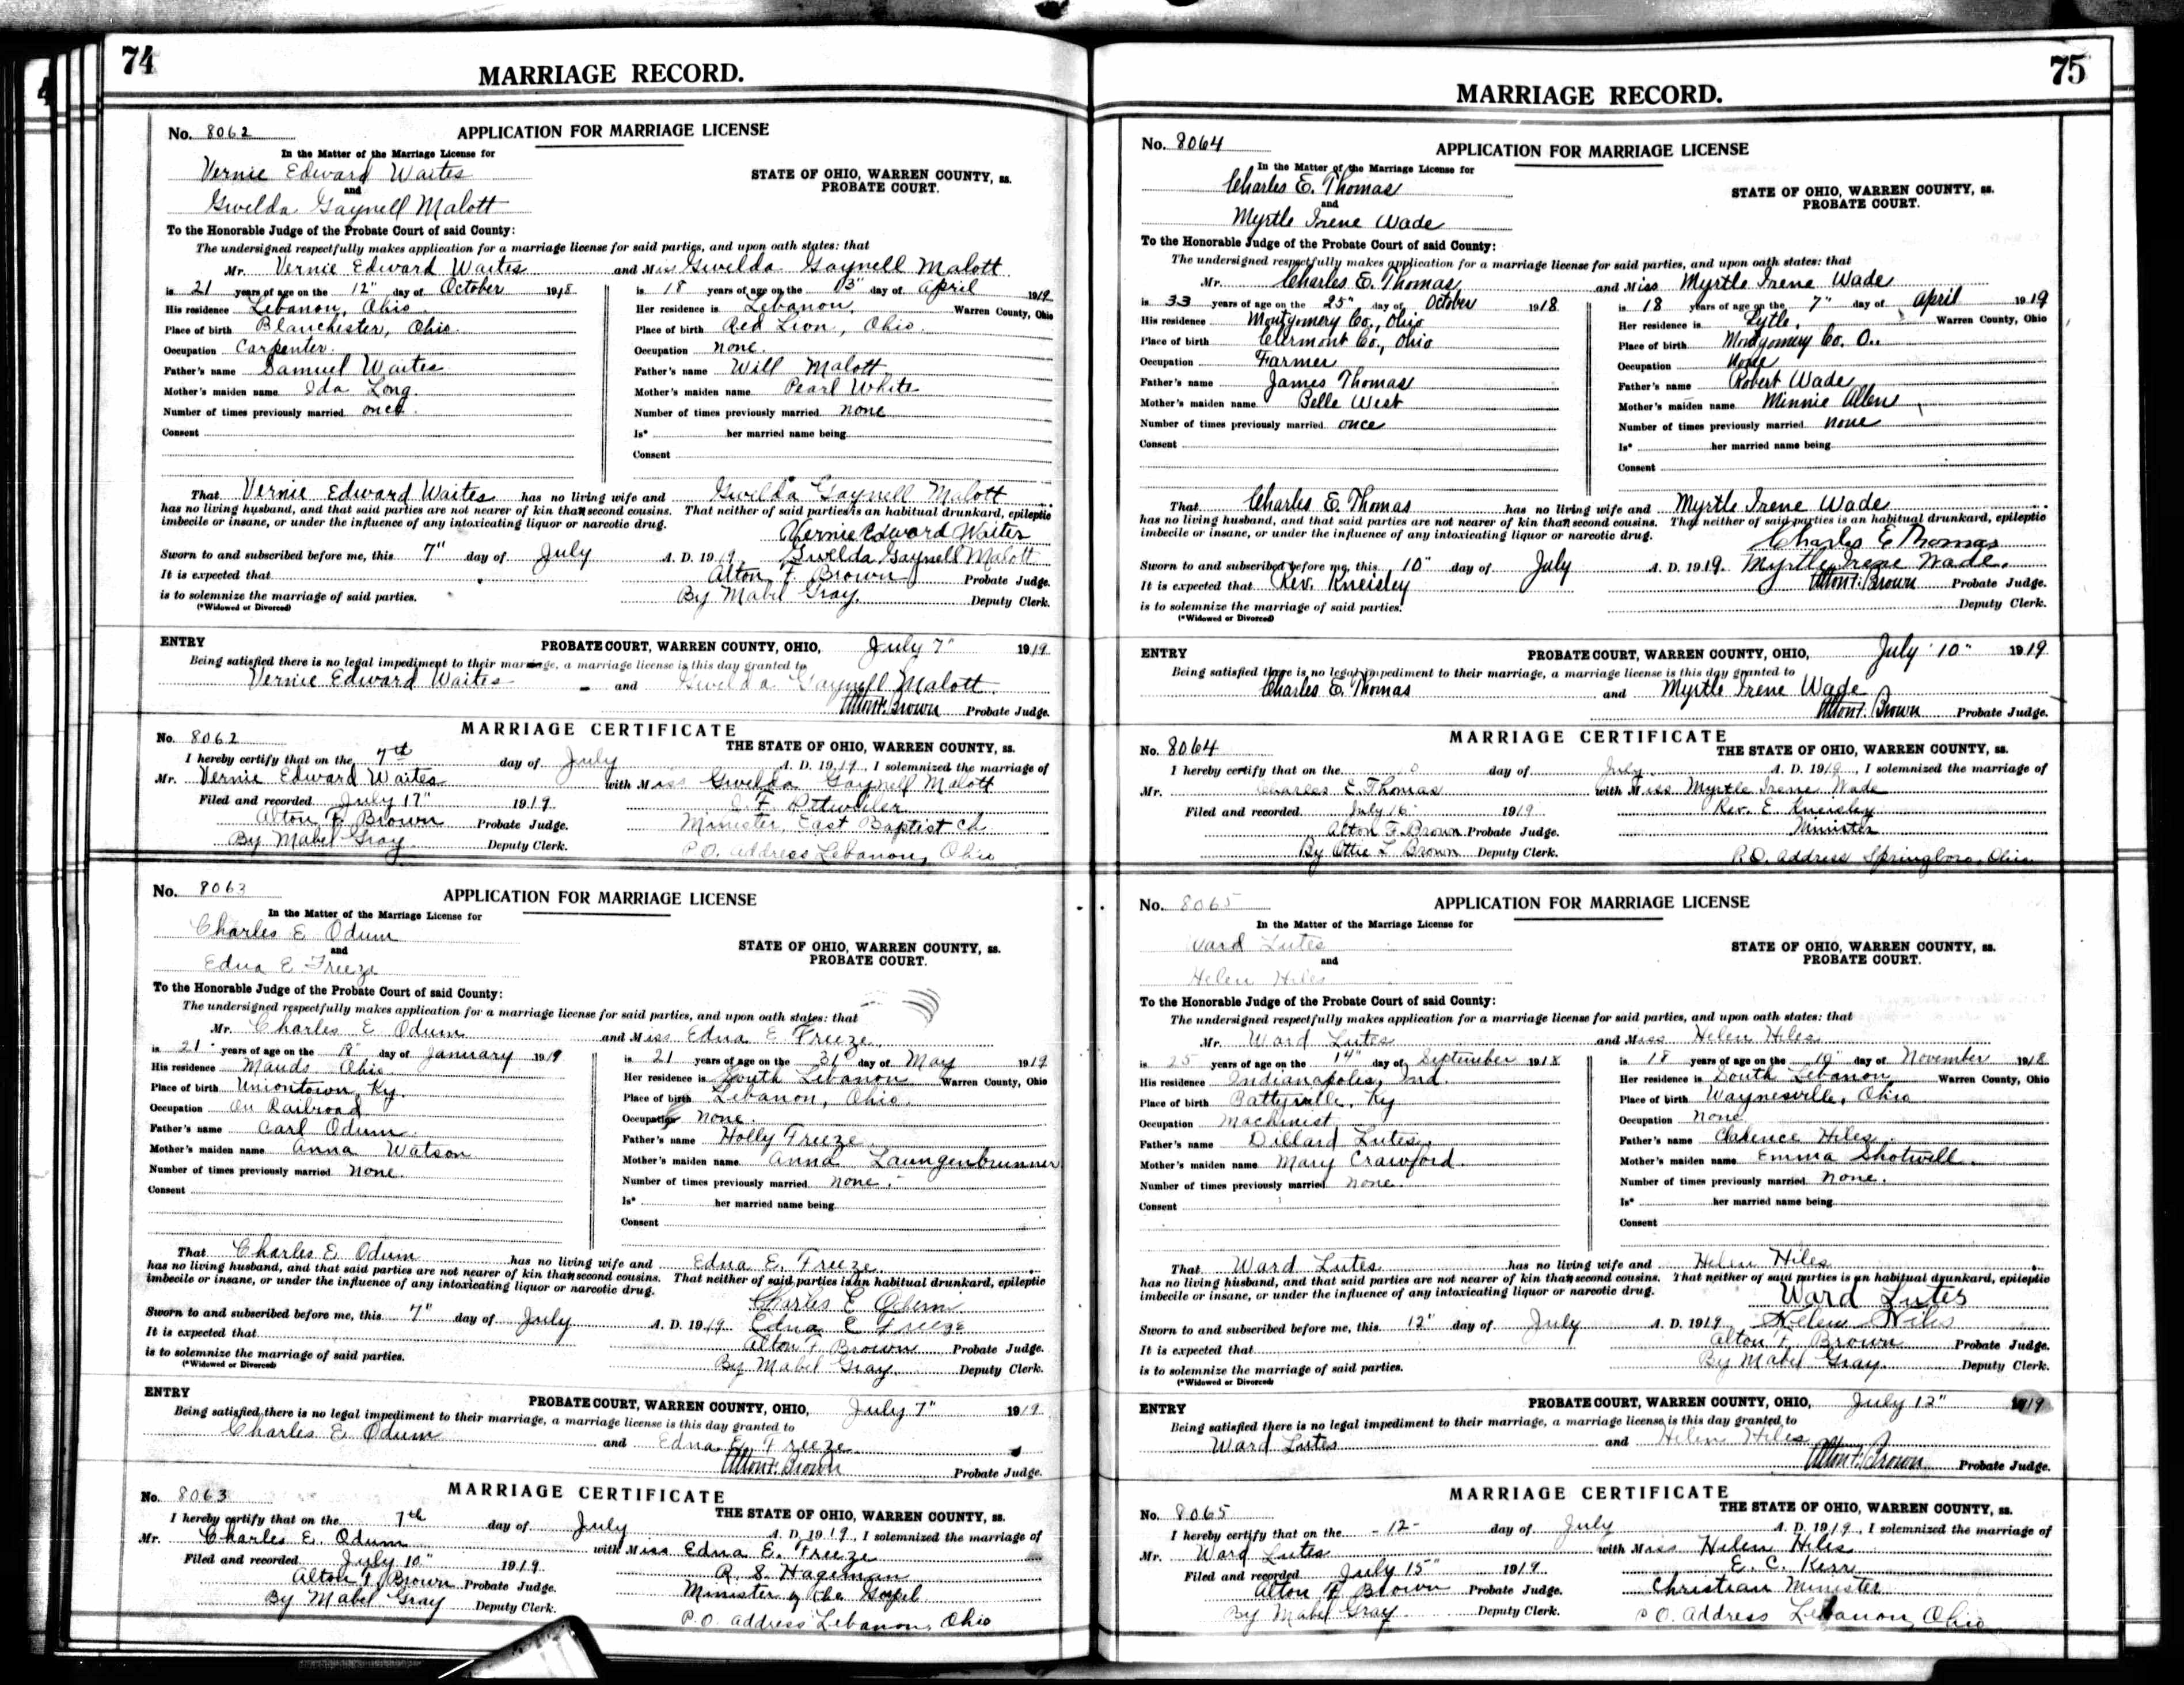 74
MARRIAGE RECORD.
No. 8062
APPLICATION FOR MARRIAGE LICENSE
In the Matter of the Marriage License for
Vernie Edward Waites
and
Gwelda Gaynell Malott
STATE OF OHIO, WARREN COUNTY, ss.
PROBATE COURT.
To the Honorable Judge of the Probate Court of said County:
The undersigned respectfully makes application for a marriage license for said parties, and upon oath states: that
Mr. Vernie Edward Waites and Miss Gwelda Gaynell Malott
is 21 years of age on the 12" day of October 1918
His residence Lebanon, Ohio
Place of birth Blanchester, Ohio.
Occupation Carpenter.
Father's name Samuel Waites
Mother's maiden name Ida Long.
Number of times previously married once.
Consent
is 18 years of age on the 13" day of April 1919
Her residence is Lebanon, Warren County, Ohio
Place of birth Red Lion, Ohio.
Occupation none.
Father's name Will Malott
Mother's maiden name Pearl White
Number of times previously married none
Is* her married name being
Consent
That Vernie Edward Waites has no living wife and Gwelda Gaynell Malott
has no living husband, and that said parties are not nearer of kin than second cousins. That neither of said parties is an habitual drunkard, epileptic
imbecile or insane, or under the influence of any intoxicating liquor or narcotic drug.
Vernie Edward Waites
Sworn to and subscribed before me, this 7" day of July A. D. 1919 Gwelda Gaynell Malott
It is expected that Alton F. Brown Probate Judge.
is to solemnize the marriage of said parties. By Mabel Gray. Deputy Clerk.
(*Widowed or Divorced)
ENTRY PROBATE COURT, WARREN COUNTY, OHIO, July 7" 1919
Being satisfied there is no legal impediment to their marriage, a marriage license is this day granted to
Vernie Edward Waites and Gwelda Gaynell Malott
Alton F. Brown Probate Judge.
MARRIAGE CERTIFICATE
No. 8062 THE STATE OF OHIO, WARREN COUNTY, ss.
I hereby certify that on the 7th day of July A. D. 1919, I solemnized the marriage of
Mr. Vernie Edward Waites with Miss Gwelda Gaynell Malott
Filed and recorded July 17" 1919
Alton F. Brown Probate Judge. Minister, East Baptist Ch
By Mabel Gray Deputy Clerk. P.O. address Lebanon, Ohio
No. 8063
APPLICATION FOR MARRIAGE LICENSE
In the Matter of the Marriage License for
Charles E Odum
and
Edna E Freeze
STATE OF OHIO, WARREN COUNTY, ss.
PROBATE COURT.
To the Honorable Judge of the Probate Court of said County:
The undersigned respectfully makes application for a marriage license for said parties, and upon oath states: that
Mr. Charles E Odum and Miss Edna E Freeze
is 21 years of age on the 18" day of January 1919
His residence Mauds Ohio
Place of birth Uniontown, Ky.
Occupation On Railroad
Father's name Carl Odum.
Mother's maiden name Anna Watson
Number of times previously married None.
Consent
is 21 years of age on the 31" day of May 1919
Her residence is South Lebanon Warren County, Ohio
Place of birth Lebanon, Ohio.
Occupation none.
Father's name Holly Freeze
Mother's maiden name Anna Laungenbrunner
Number of times previously married none.
Is* her married name being
Consent
That Charles E. Odum has no living wife and Edna E. Freeze
has no living husband, and that said parties are not nearer of kin than second cousins. That neither of said parties is an habitual drunkard, epileptic
imbecile or insane, or under the influence of any intoxicating liquor or narcotic drug.
Charles E Odum
Sworn to and subscribed before me, this 7" day of July A. D. 1919. Edna E Freeze
It is expected that Alton F. Brown Probate Judge.
is to solemnize the marriage of said parties. By Mabel Gray. Deputy Clerk.
(*Widowed or Divorced)
ENTRY PROBATE COURT, WARREN COUNTY, OHIO, July 7" 1919
Being satisfied there is no legal impediment to their marriage, a marriage license is this day granted to
Charles E. Odum and Edna E. Freeze
Alton F. Brown Probate Judge.
MARRIAGE CERTIFICATE
No. 8063 THE STATE OF OHIO, WARREN COUNTY, ss.
I hereby certify that on the 7th day of July A. D. 1919, I solemnized the marriage of
Mr. Charles E. Odum with Miss Edna E. Freeze
Filed and recorded July 10" 1919 R. S. Hageman
Alton F. Brown Probate Judge. Minister of the Gospel
By Mabel Gray Deputy Clerk. P.O. address Lebanon, Ohio
75
MARRIAGE RECORD.
No. 8064
APPLICATION FOR MARRIAGE LICENSE
In the Matter of the Marriage License for
Charles E. Thomas
and
Myrtle Irene Wade
STATE OF OHIO, WARREN COUNTY, ss.
PROBATE COURT.
To the Honorable Judge of the Probate Court of said County:
The undersigned respectfully makes application for a marriage license for said parties, and upon oath states: that
Mr. Charles E. Thomas and Miss Myrtle Irene Wade
is 33 years of age on the 25" day of October 1918
His residence Montgomery Co., Ohio
Place of birth Clermont Co., Ohio
Occupation Farmer
Father's name James Thomas
Mother's maiden name Belle West
Number of times previously married once
Consent
is 18 years of age on the 7" day of April 1919
Her residence is Lytle, Warren County, Ohio
Place of birth Montgomery Co. O.
Occupation None
Father's name Robert Wade
Mother's maiden name Minnie Allen
Number of times previously married none
Is* her married name being
Consent
That Charles E. Thomas has no living wife and Myrtle Irene Wade
has no living husband, and that said parties are not nearer of kin than second cousins. That neither of said parties is an habitual drunkard, epileptic
imbecile or insane, or under the influence of any intoxicating liquor or narcotic drug.
Charles E Thomas
Sworn to and subscribed before me, this 10" day of July A. D. 1919. Myrtle Irene Wade.
It is expected that Rev. Kneisley Alton F. Brown Probate Judge.
is to solemnize the marriage of said parties. Deputy Clerk.
(*Widowed or Divorced)
ENTRY PROBATE COURT, WARREN COUNTY, OHIO, July 10" 1919
Being satisfied there is no legal impediment to their marriage, a marriage license is this day granted to
Charles E. Thomas and Myrtle Irene Wade
Alton F. Brown Probate Judge.
MARRIAGE CERTIFICATE
No. 8064 THE STATE OF OHIO, WARREN COUNTY, ss.
I hereby certify that on the day of July A. D. 1919, I solemnized the marriage of
Mr. Charles E. Thomas with Miss Myrtle Irene Wade
Filed and recorded July 16 1919 Rev. E. Kneisley
Alton F. Brown Probate Judge. Minister
By Ottie L Brown Deputy Clerk. P.O. address Springboro, Ohio
No. 8065
APPLICATION FOR MARRIAGE LICENSE
In the Matter of the Marriage License for
Ward Lutes
and
Helen Hiles
STATE OF OHIO, WARREN COUNTY, ss.
PROBATE COURT.
To the Honorable Judge of the Probate Court of said County:
The undersigned respectfully makes application for a marriage license for said parties, and upon oath states: that
Mr. Ward Lutes and Miss Helen Hiles
is 25 years of age on the 14" day of September 1918
His residence Indianapolis, Ind.
Place of birth Battyville, Ky
Occupation Machinist
Father's name Dillard Lutes.
Mother's maiden name Mary Crawford.
Number of times previously married none.
Consent
is 18 years of age on the 19" day of November 1918
Her residence is South Lebanon Warren County, Ohio
Place of birth Waynesville, Ohio
Occupation none
Father's name Clarence Hiles.
Mother's maiden name Emma Shotwell.
Number of times previously married none.
Is* her married name being
Consent
That Ward Lutes has no living wife and Helen Hiles
has no living husband, and that said parties are not nearer of kin than second cousins. That neither of said parties is an habitual drunkard, epileptic
imbecile or insane, or under the influence of any intoxicating liquor or narcotic drug.
Ward Lutes
Sworn to and subscribed before me, this 12" day of July A. D. 1919 Helen Hiles
It is expected that Alton F. Brown Probate Judge.
is to solemnize the marriage of said parties. By Mabel Gray. Deputy Clerk.
(*Widowed or Divorced)
ENTRY PROBATE COURT, WARREN COUNTY, OHIO, July 12" 1919
Being satisfied there is no legal impediment to their marriage, a marriage license is this day granted to
Ward Lutes and Helen Hiles
Alton F. Brown Probate Judge.
MARRIAGE CERTIFICATE
No. 8065 THE STATE OF OHIO, WARREN COUNTY, ss.
I hereby certify that on the -12- day of July A. D. 1919, I solemnized the marriage of
Mr. Ward Lutes with Miss Helen Hiles
Filed and recorded July 15" 1919 E. C. Kerr
Alton F. Brown Probate Judge. Christian Minister
By Mabel Gray Deputy Clerk. P.O. Address Lebanon, Ohio